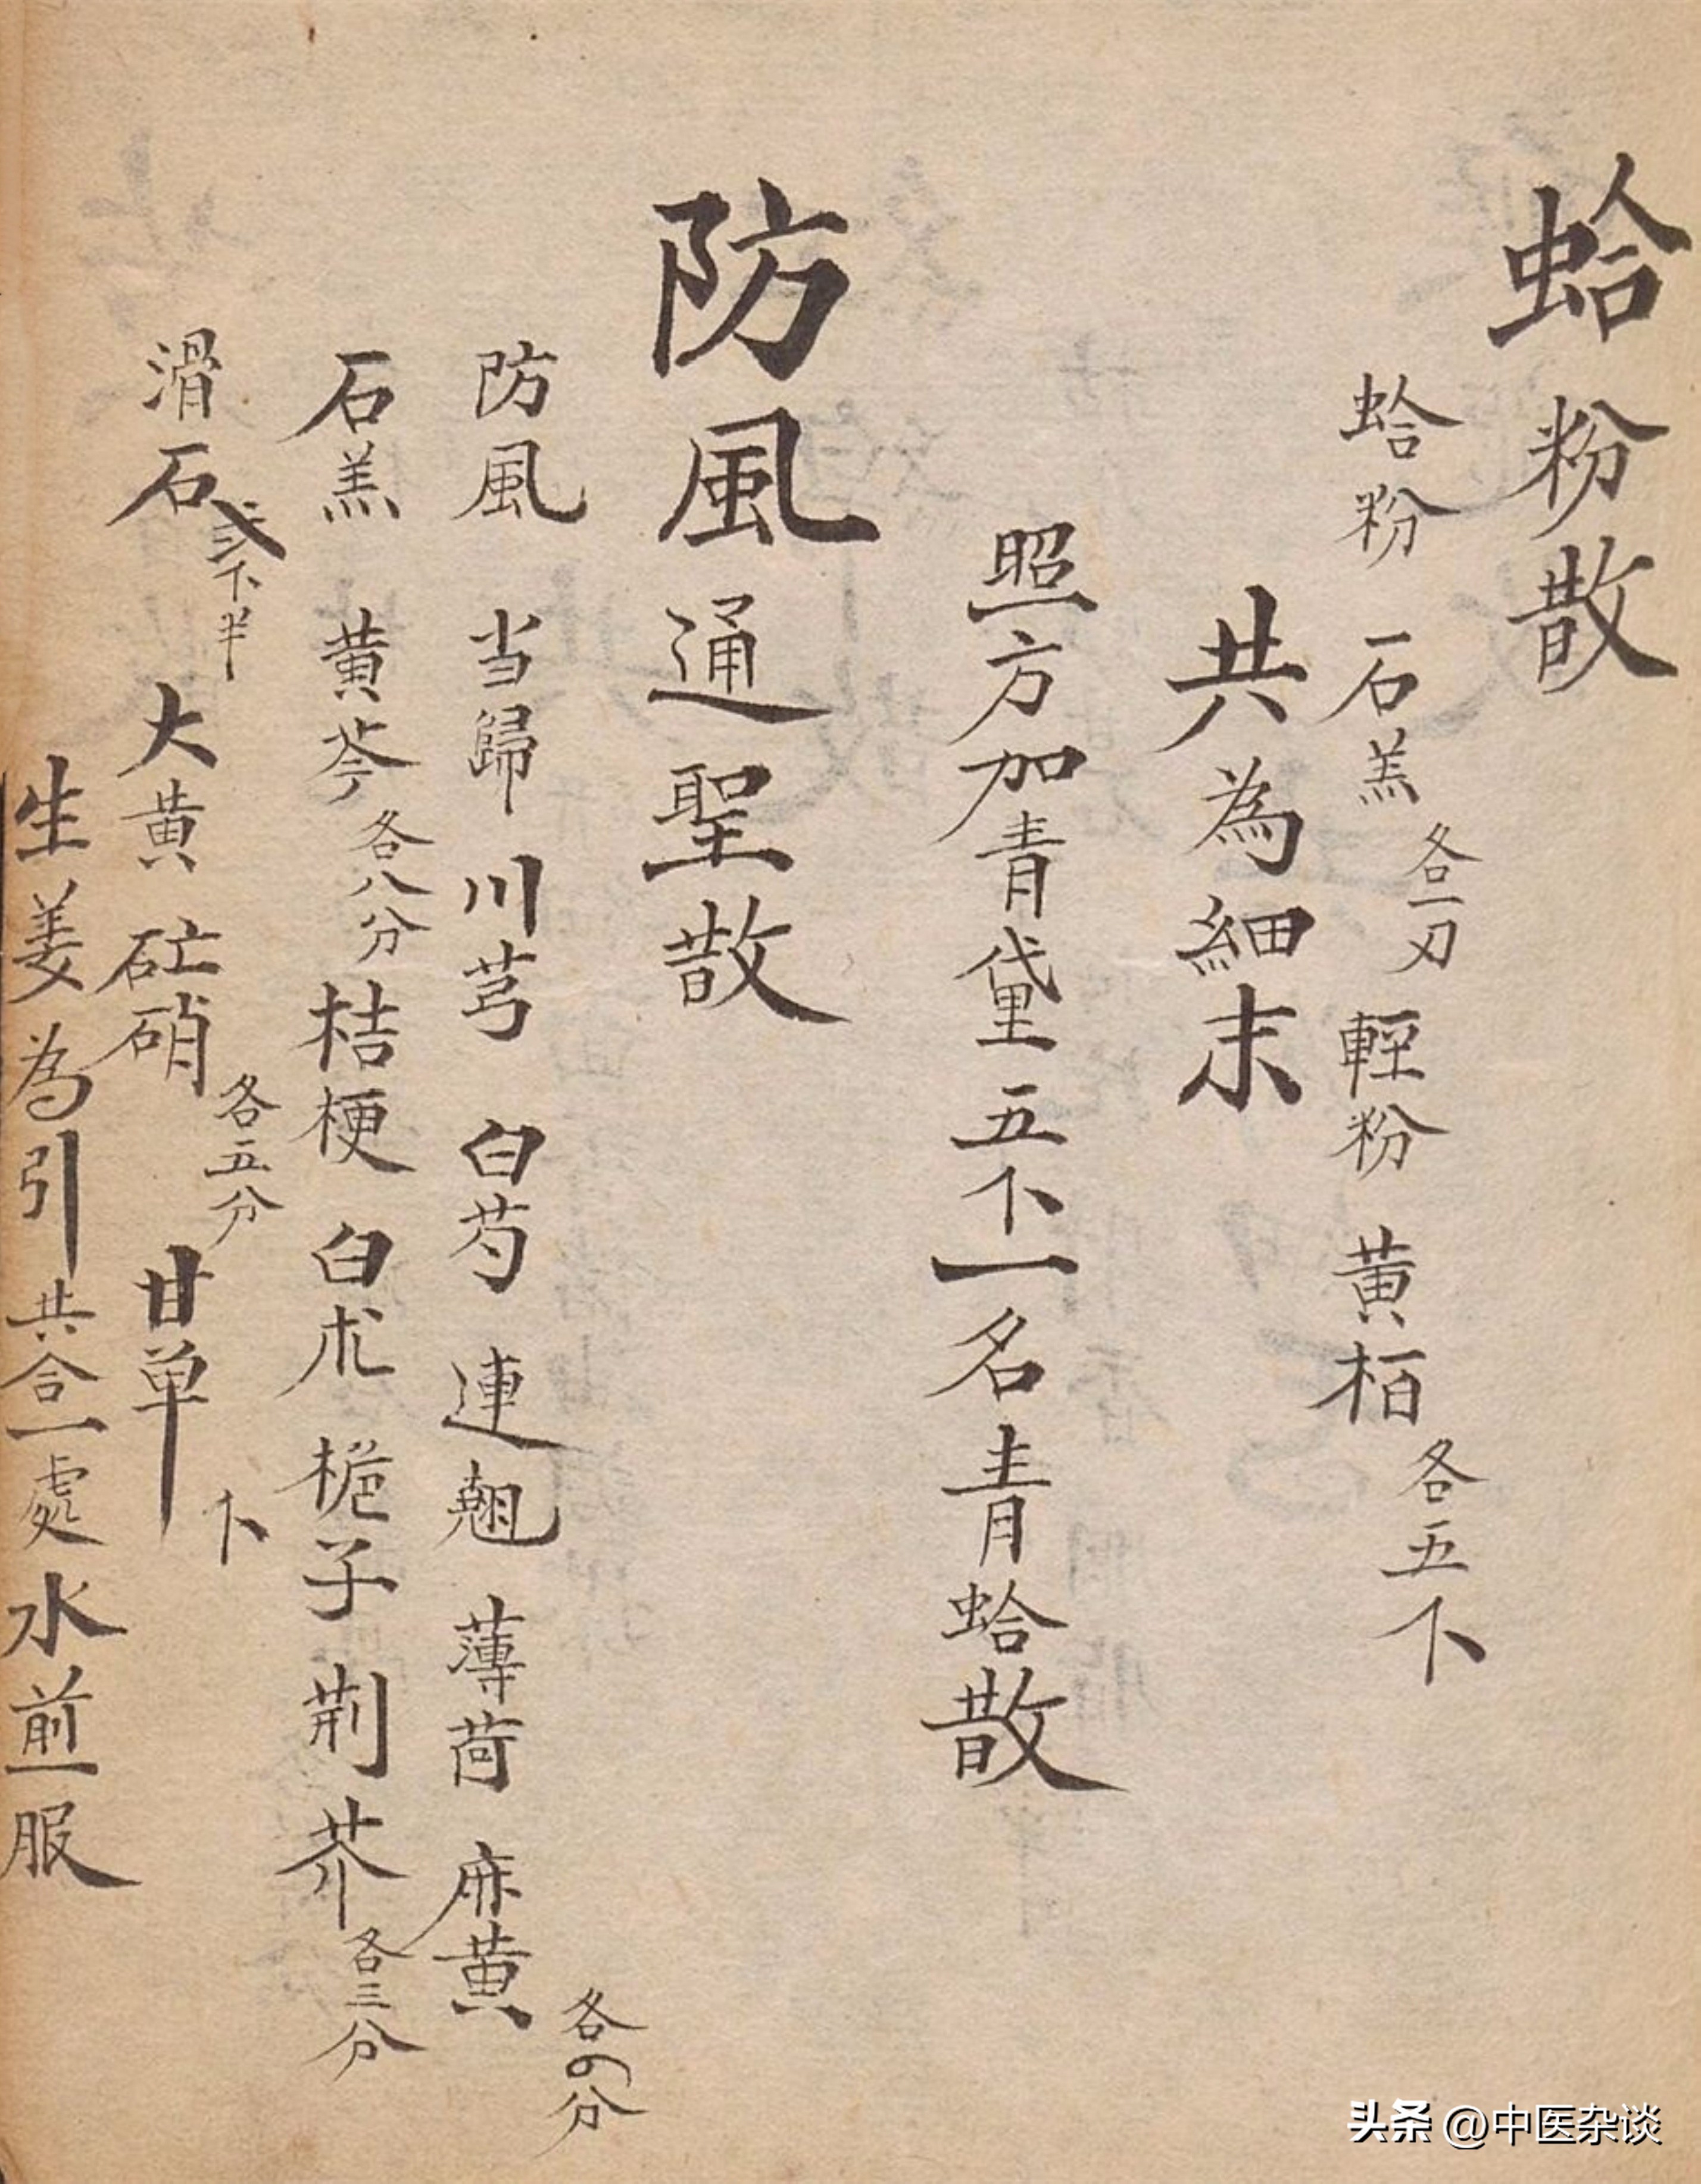 蛤粉散
蛤粉 石羔 各一刃 輕粉 黄栢 各五下
共為細末
照方加青黛五下一名青蛤散
防風通聖散
防風 当歸 川芎 白芍 連翹 薄荷 麻黄 各四分
石羔 黄芩 各八分 桔梗 白朮 栀子 荆芥 各三分
滑石 弍下半 大黄 硭硝 各五分 甘草 下
生姜為引共合一處水煎服
头条 @中医杂谈